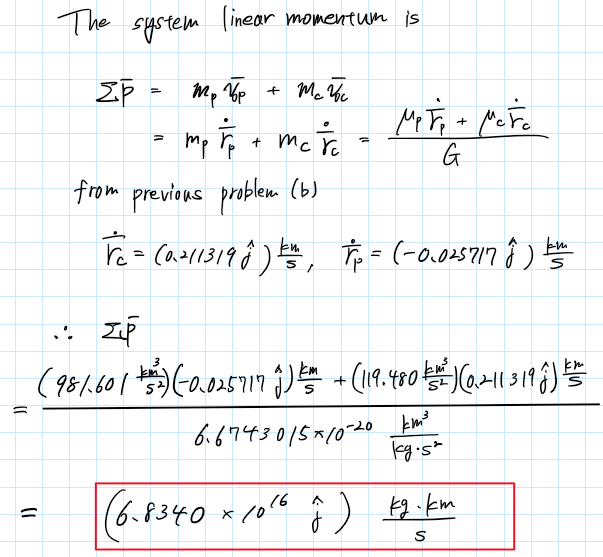 The system linear momentum is
Σp̄ = m_p v̄_p + m_c v̄_c
= m_p ṙ̄_p + m_c ṙ̄_c = (μ_p ṙ̄_p + μ_c ṙ̄_c) / G
from previous problem (b)
ṙ̄_c = (0.211319 ĵ) km/s, ṙ̄_p = (-0.025717 ĵ) km/s
∴ Σp̄
= ((981.601 km³/s²)(-0.025717 ĵ) km/s + (119.480 km³/s²)(0.211319 ĵ) km/s) / (6.6743015×10⁻²⁰ km³/(kg·s²))
= (6.8340 × 10¹⁶ ĵ) kg·km/s